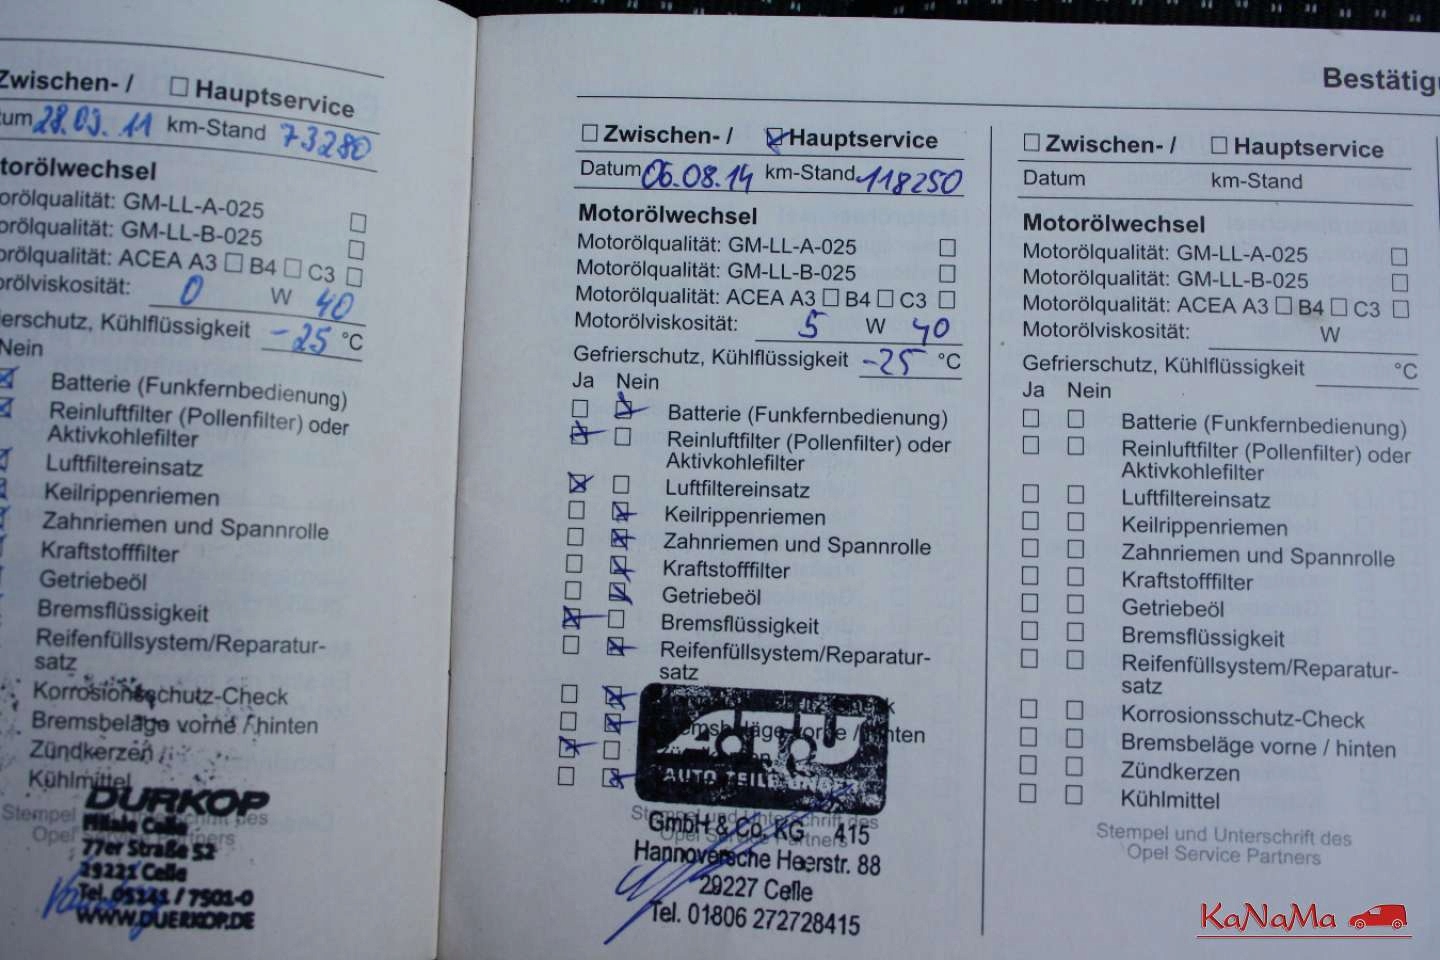 Zwischen- / Hauptservice
28.09.11 km-Stand 73280
GM-LL-A-025
GM-LL-B-025
ACEA A3 B4 C3
0 W 40
Kühlflüssigkeit -25 °C
Nein
Batterie (Funkfernbedienung)
Reinluftfilter (Pollenfilter) oder
Aktivkohlefilter
Luftfiltereinsatz
Keilrippenriemen
Zahnriemen und Spannrolle
Kraftstofffilter
Getriebeöl
Bremsflüssigkeit
Reifenfüllsystem/Reparatur-
satz
Korrosionsschutz-Check
Bremsbeläge vorne / hinten
Zündkerzen
Kühlmittel
Stempel
Opel
DÜRKOP
Filiale Celle
77er Straße 52
29221 Celle
Tel. 05141 / 7501-0
WWW.DUERKOP.DE
Zwischen- / Hauptservice
Datum 06.08.14 km-Stand 118250
Motorölwechsel
Motorölqualität: GM-LL-A-025
Motorölqualität: GM-LL-B-025
Motorölqualität: ACEA A3 B4 C3
Motorölviskosität: 5 W 40
Gefrierschutz, Kühlflüssigkeit -25 °C
Ja Nein
Batterie (Funkfernbedienung)
Reinluftfilter (Pollenfilter) oder
Aktivkohlefilter
Luftfiltereinsatz
Keilrippenriemen
Zahnriemen und Spannrolle
Kraftstofffilter
Getriebeöl
Bremsflüssigkeit
Reifenfüllsystem/Reparatur-
satz
vorne / hinten
AUTO TEILE
Stempel und Unterschrift des
Opel Service Partners
GmbH & Co. KG 415
Hannoversche Heerstr. 88
29227 Celle
Tel. 01806 272728415
Zwischen- / Hauptservice
Datum km-Stand
Motorölwechsel
Motorölqualität: GM-LL-A-025
Motorölqualität: GM-LL-B-025
Motorölqualität: ACEA A3 B4 C3
Motorölviskosität: W
Gefrierschutz, Kühlflüssigkeit °C
Ja Nein
Batterie (Funkfernbedienung)
Reinluftfilter (Pollenfilter) oder
Aktivkohlefilter
Luftfiltereinsatz
Keilrippenriemen
Zahnriemen und Spannrolle
Kraftstofffilter
Getriebeöl
Bremsflüssigkeit
Reifenfüllsystem/Reparatur-
satz
Korrosionsschutz-Check
Bremsbeläge vorne / hinten
Zündkerzen
Kühlmittel
Stempel und Unterschrift des
Opel Service Partners
KaNaMa